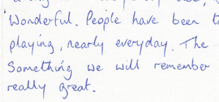 Wonderful. People have been t
playing, nearly everyday. The
Something we will remember
really great.